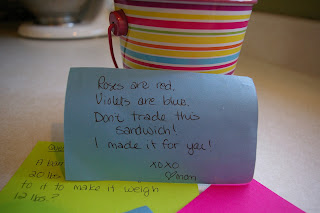 Roses are red,
Violets are blue.
Don't trade this
sandwich!
I made it for you!
xoxo
♡mom
A
20 lbs
to it to make it weigh
12 lbs.?